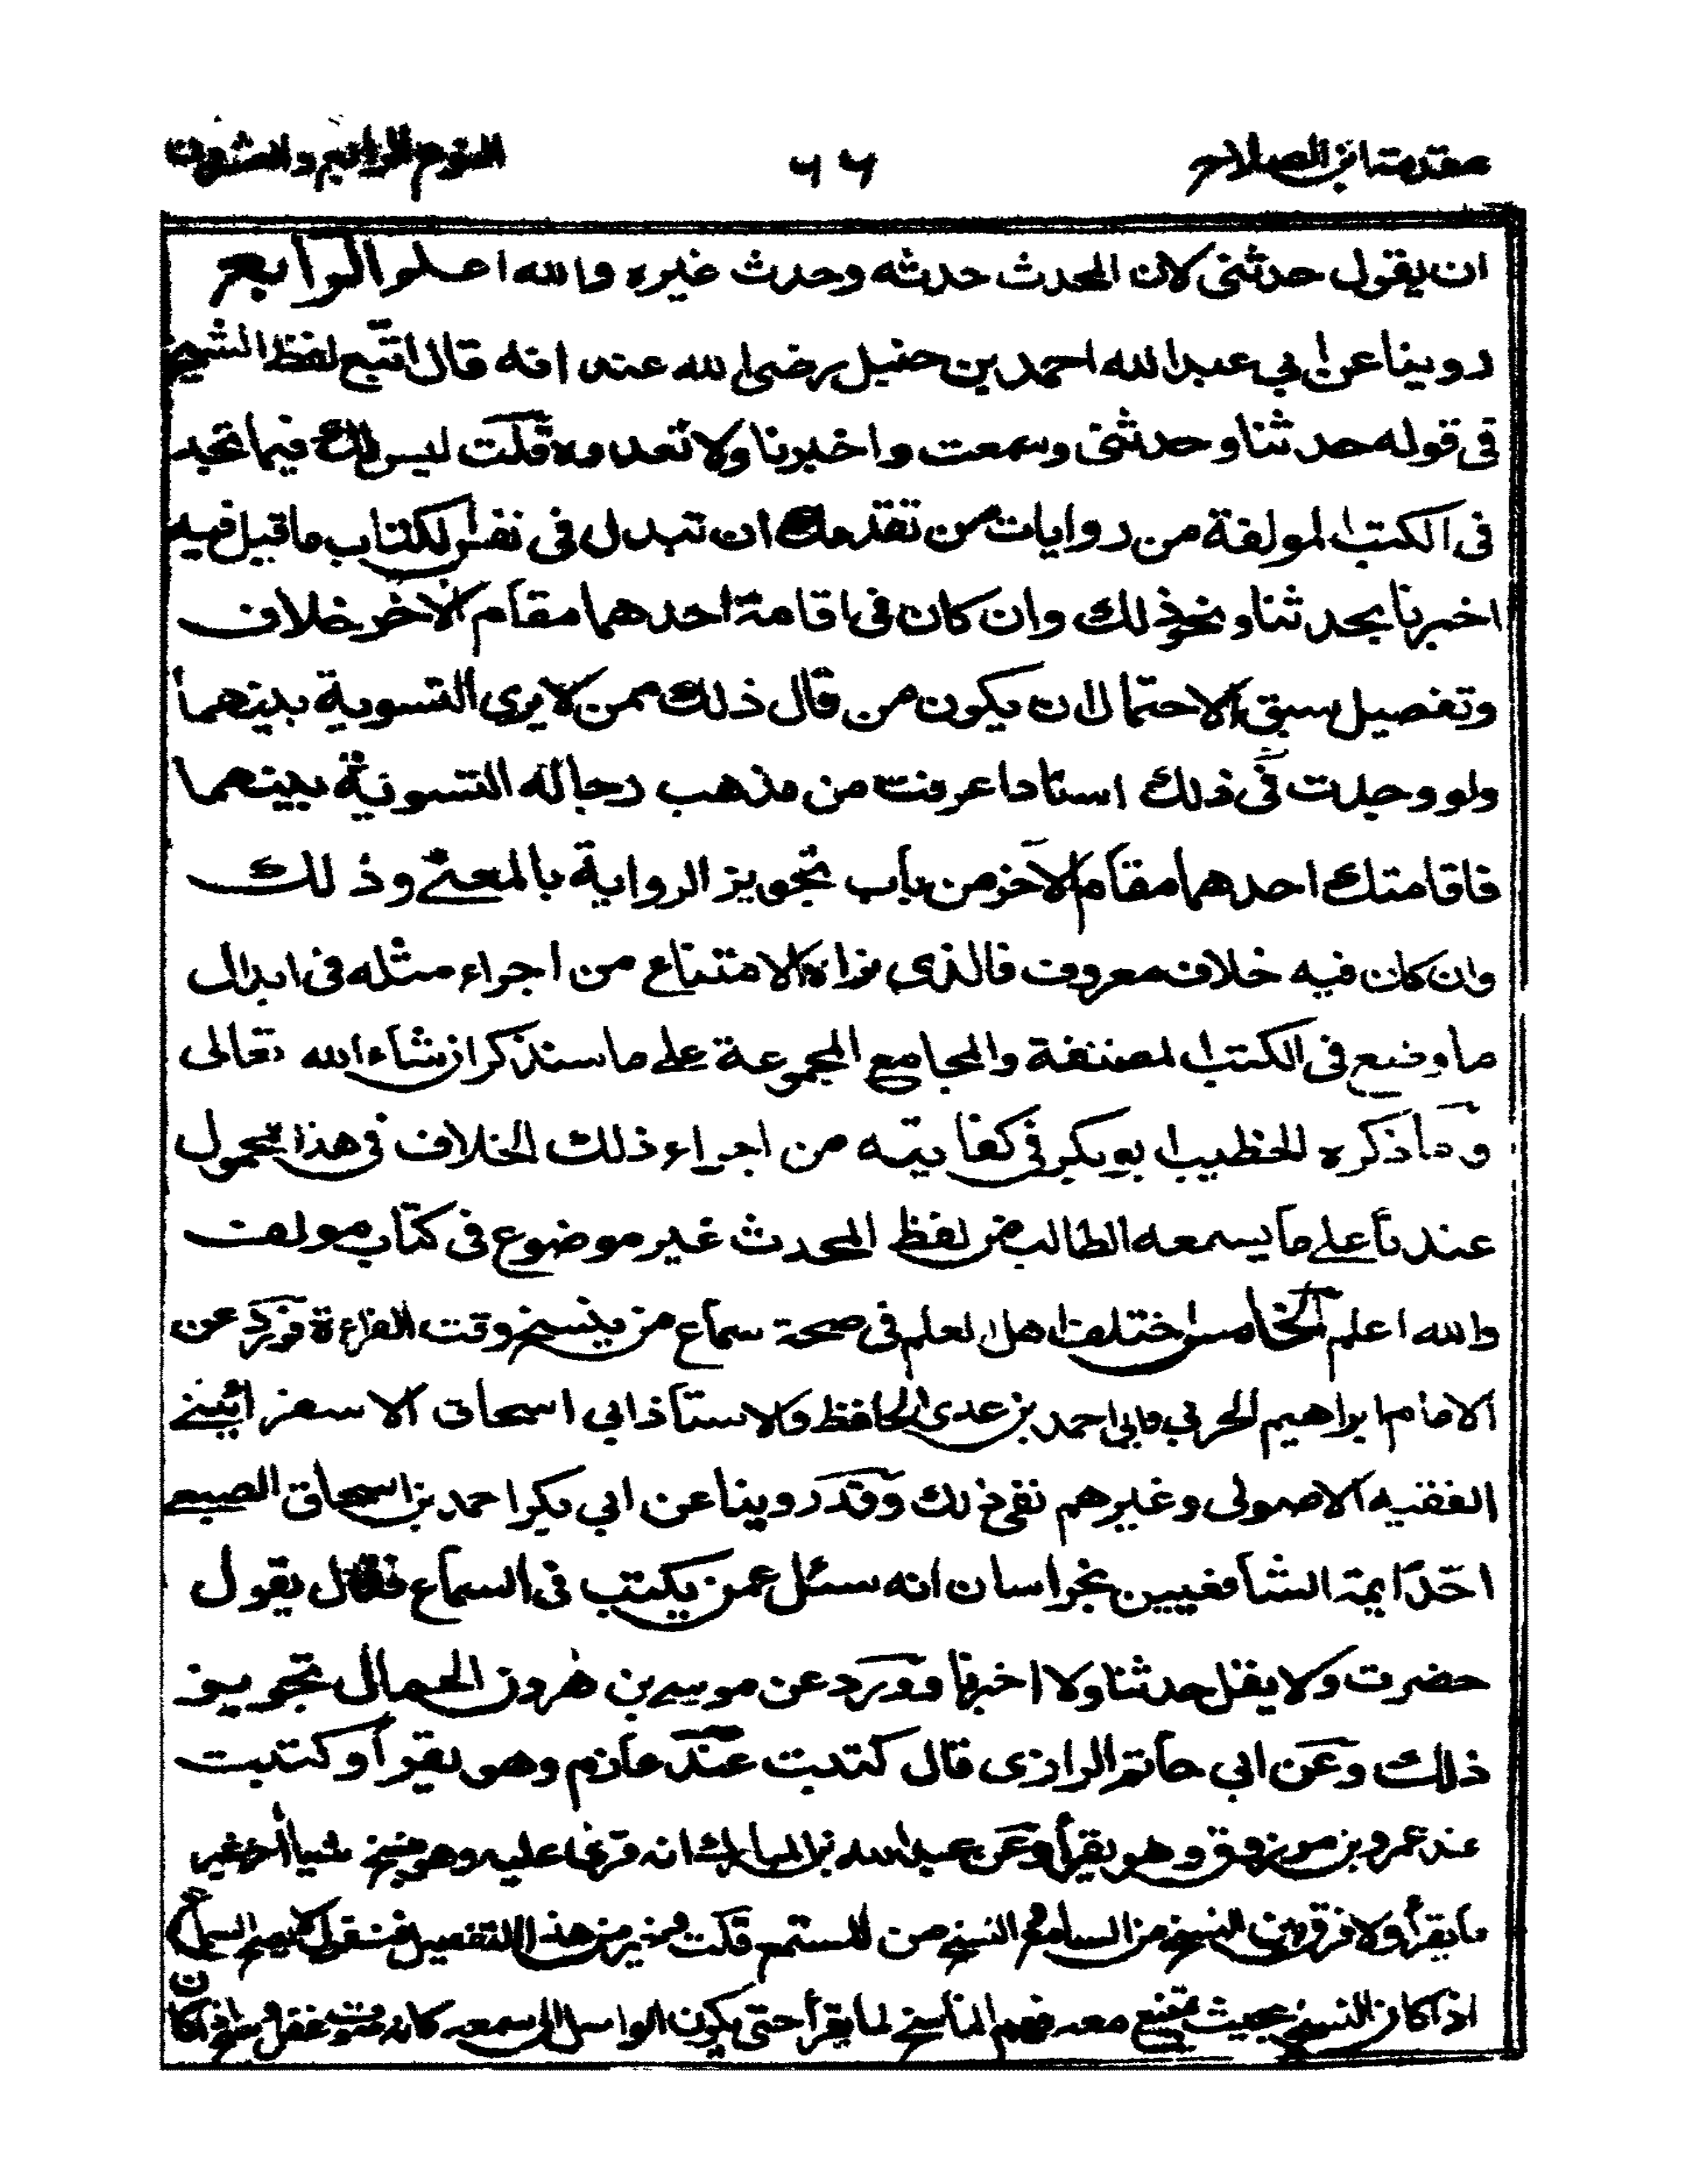 مقدمة ابن الصلاح
٦٦
النوع الرابع والعشرون
ان يقول حدثنى لان المحدث حدثه وحدث غيره والله اعلم الرابع
روينا عن ابي عبد الله احمد بن حنبل رضى الله عنه انه قال اتبع لفظ الشيخ
فى قوله حدثنا وحدثنى وسمعت واخبرنا ولا تعدوه قلت ليس لك فيما تجد
فى الكتب المولفة من روايات من تقدمك ان تبدل فى نفس الكتاب ما قيل فيه
اخبرنا بحدثنا ونحو ذلك وان كان فى اقامة احدهما مقام الآخر خلاف
وتفصيل سبق لاحتمال ان يكون من قال ذلك ممن لا يرى التسوية بينهما
ولو وجدت فى ذلك اسنادا عرفت من مذهب رجاله التسوية بينهما
فاقامتك احدهما مقام الآخر من باب تجويز الرواية بالمعنى وذلك
وان كان فيه خلاف معروف فالذى نراه الامتناع من اجراء مثله فى ابدال
ما وضع فى الكتب المصنفة والمجامع المجموعة على ما سنذكر ان شاء الله تعالى
وما ذكره الخطيب ابو بكر فى كفايته من اجراء ذلك الخلاف فى هذا محمول
عندنا على ما يسمعه الطالب من لفظ المحدث غير موضوع فى كتاب مولف
والله اعلم الخامس اختلف اهل العلم فى صحة سماع من ينسخ وقت القراءة فورد عن
الامام ابراهيم الحربي وابي احمد بن عدى الحافظ والاستاذ ابي اسحاق الاسفرائينى
الفقيه الاصولى وغيرهم نفى ذلك وقد روينا عن ابي بكر احمد بن اسحاق الصبغى
احد ايمة الشافعيين بخراسان انه سئل عمن يكتب فى السماع فقال يقول
حضرت ولا يقل حدثنا ولا اخبرنا وورد عن موسى بن هرون الحمال تجويز
ذلك وعن ابي حاتم الرازى قال كتبت عند عارم وهو يقرأ وكتبت
عند عمرو بن مرزوق وهو يقرأ وعن عبد الله بن المبارك انه قرئ عليه وهو ينسخ شيا آخر غير
ما يقرأ ولا فرق بين النسخ من السامع النسخ من المستمع قلت وخير من هذا التفصيل فنقول لا يصح السماع
اذا كان النسخ بحيث يمتنع معه فهم الناسخ لما يقرأ حتى يكون الواصل الى سمعه كانه صوت غفل ويصح اذا كان